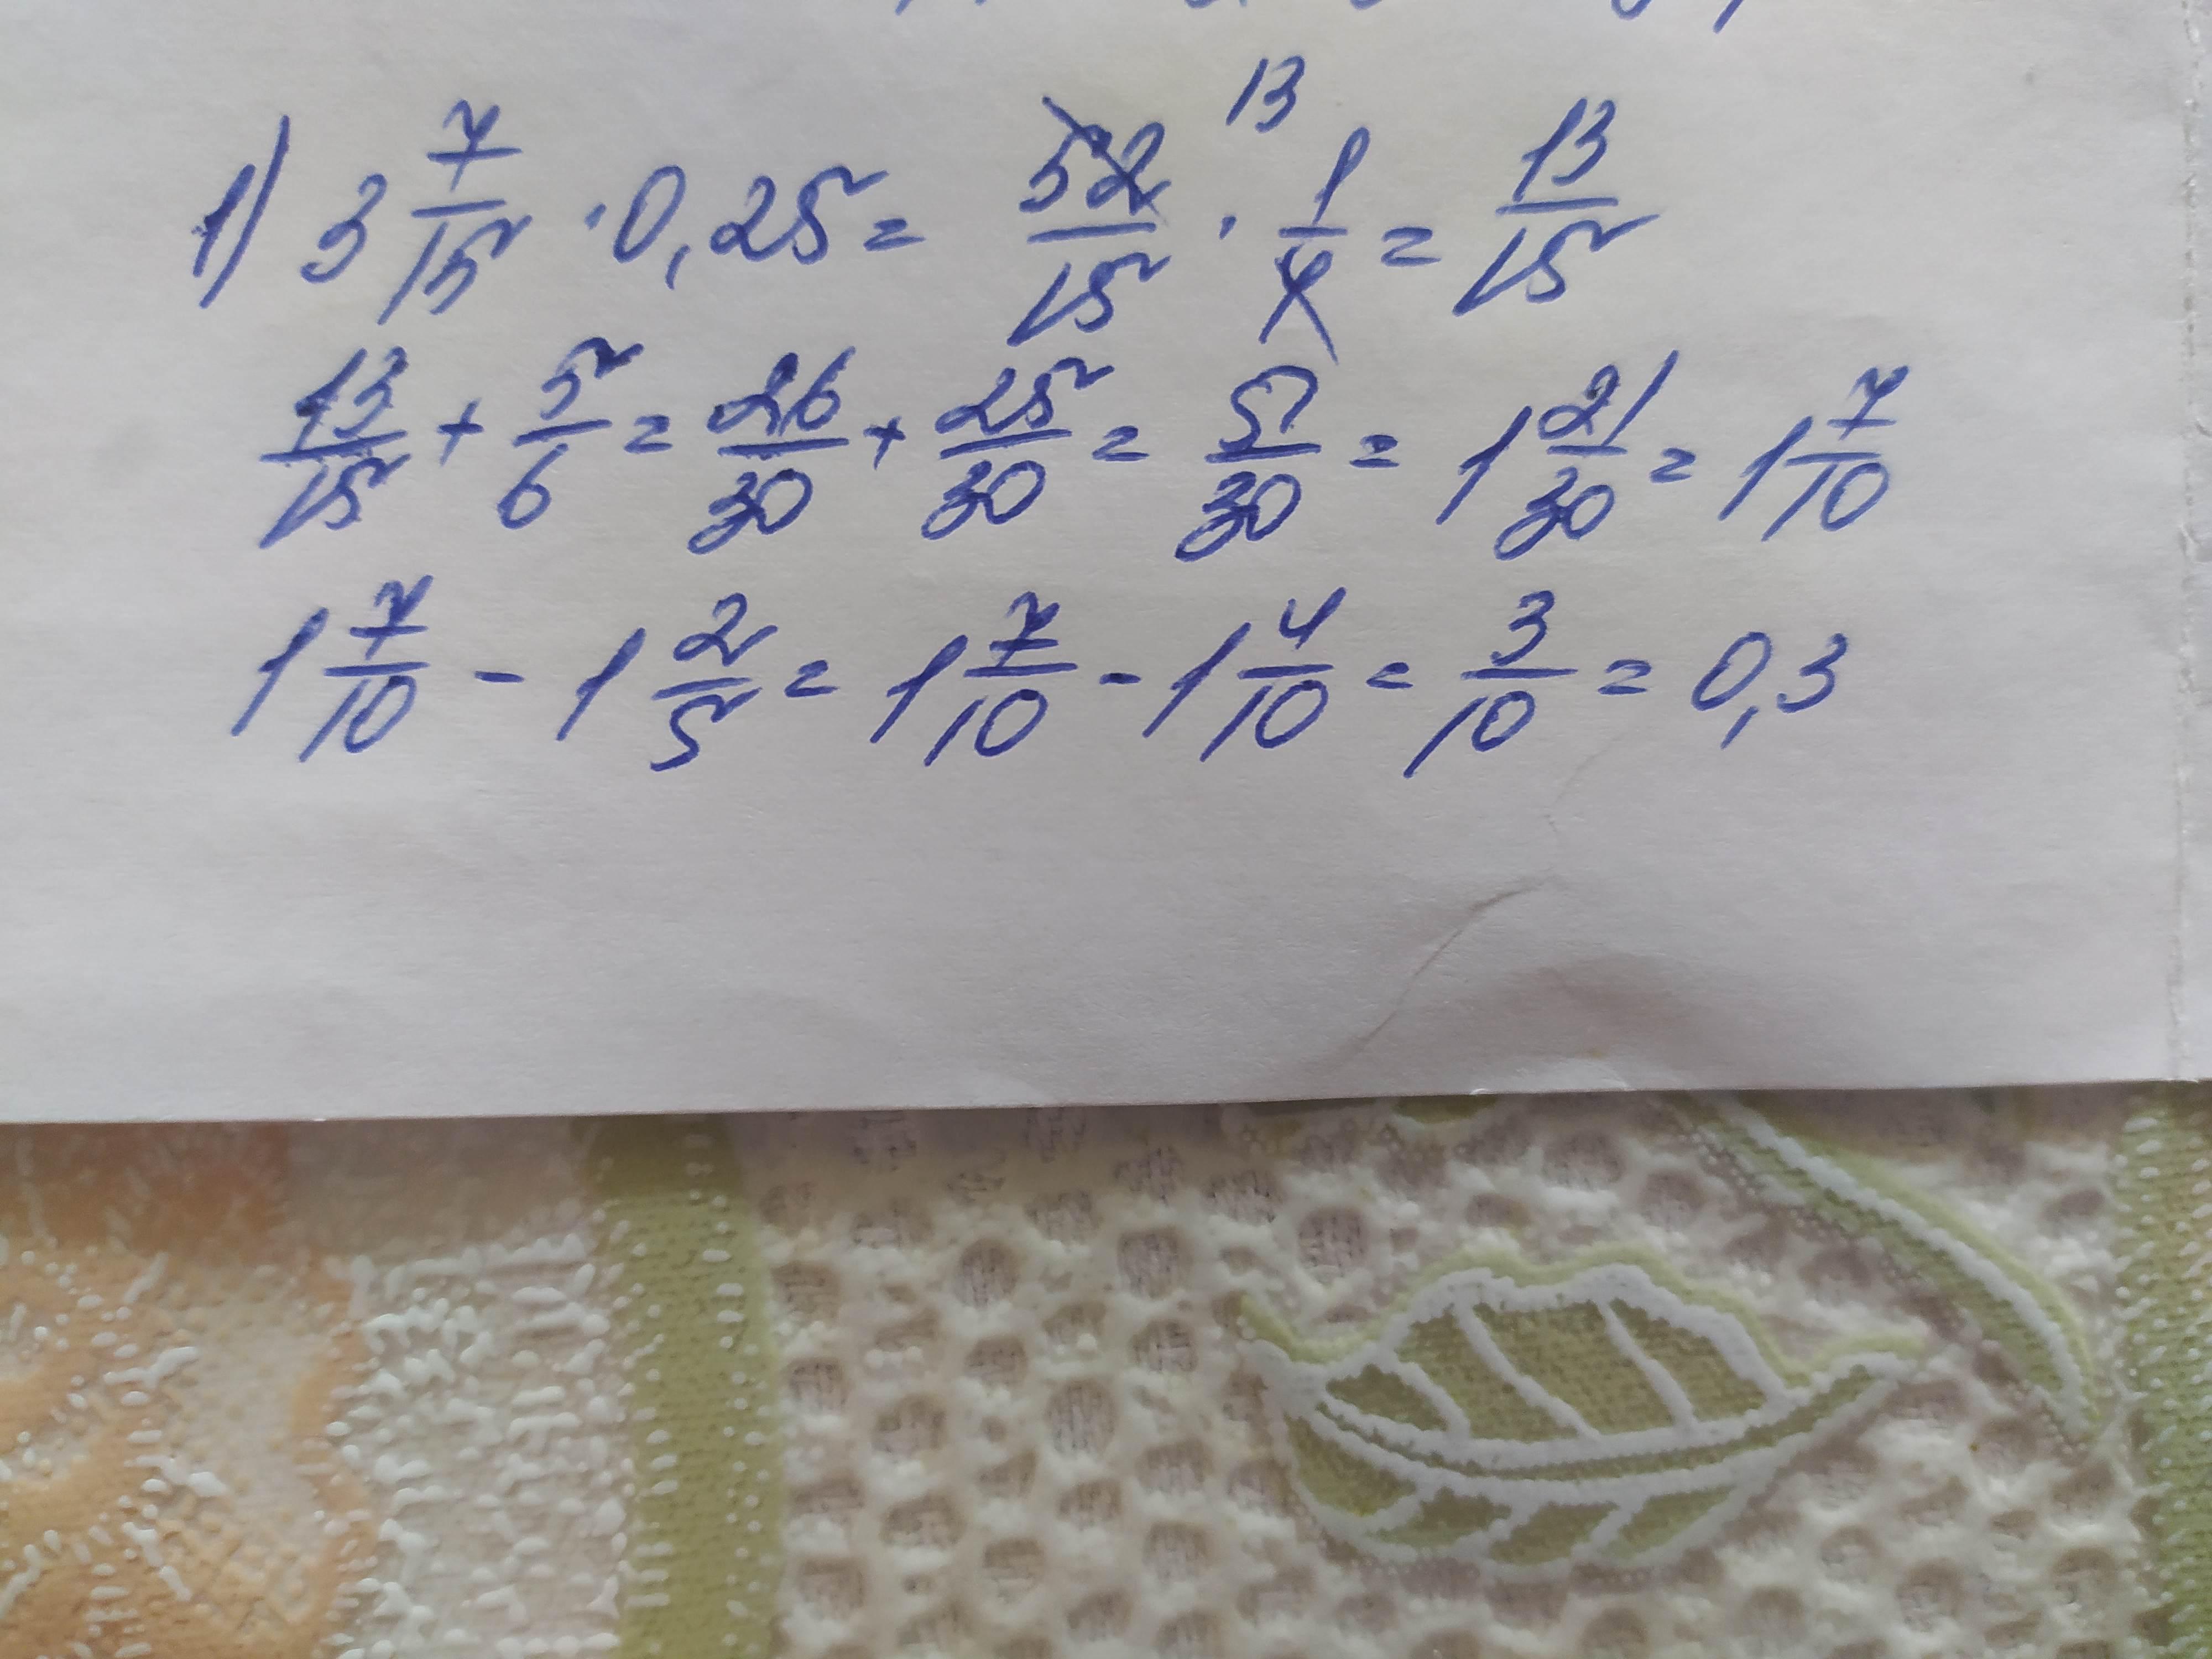 1) 3 7/15 · 0,25 = 52/15 13 · 1/4 = 13/15
13/15 + 5/6 = 26/30 + 25/30 = 51/30 = 1 21/30 = 1 7/10
1 7/10 - 1 2/5 = 1 7/10 - 1 4/10 = 3/10 = 0,3